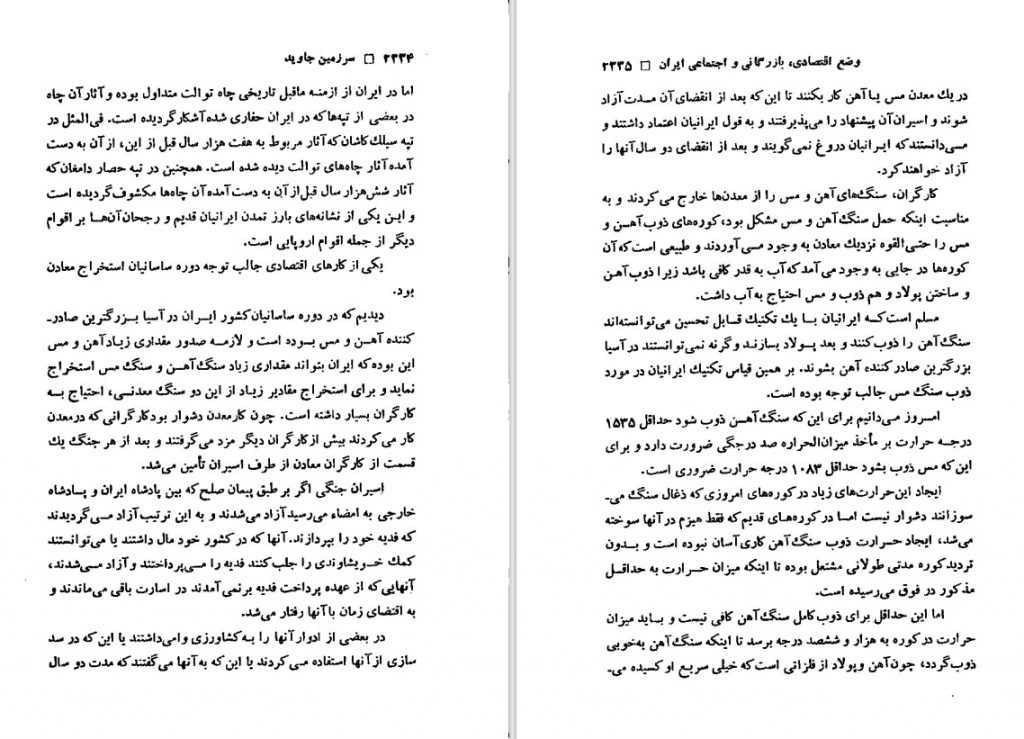 ۲۳۳۴ □ سرزمین جاوید
اما در ایران از ازمنه ماقبل تاریخی چاه توالت متداول بوده و آثار آن چاه
در بعضی از تپه‌ها که در ایران حفاری شده آشکار گردیده است. فی‌المثل در
تپه سیلك کاشان که آثار مربوط به هفت هزار سال قبل از این، از آن به دست
آمده آثار چاه‌های توالت دیده شده است. همچنین در تپه حصار دامغان که
آثار شش‌هزار سال قبل از آن به دست آمده آن چاه‌ها مکشوف گردیده است
و این یکی از نشانه‌های بارز تمدن ایرانیان قدیم و رجحان آن‌ها بر اقوام
دیگر از جمله اقوام اروپایی است.
یکی از کارهای اقتصادی جالب توجه دوره ساسانیان استخراج معادن
بود.
دیدیم که در دوره ساسانیان کشور ایران در آسیا بزرگترین صادر-
کننده آهن و مس بوده است و لازمه صدور مقداری زیاد آهن و مس
این بوده که ایران بتواند مقداری زیاد سنگ آهن و سنگ مس استخراج
نماید و برای استخراج مقادیر زیاد از این دو سنگ معدنی، احتیاج به
کارگران بسیار داشته است. چون کار معدن دشوار بود کارگرانی که در معدن
کار می‌کردند بیش از کارگران دیگر مزد می‌گرفتند و بعد از هر جنگ یك
قسمت از کارگران معادن از طرف اسیران تأمین می‌شد.
اسیران جنگی اگر بر طبق پیمان صلح که بین پادشاه ایران و پادشاه
خارجی به امضاء می‌رسید آزاد می‌شدند و به این ترتیب آزاد می‌گردیدند
که فدیه خود را بپردازند. آنها که در کشور خود مال داشتند یا می‌توانستند
کمك خویشاوندی را جلب کنند فدیه را می‌پرداختند و آزاد می‌شدند،
آنهایی که از عهده پرداخت فدیه بر نمی‌آمدند در اسارت باقی می‌ماندند و
به اقتضای زمان با آنها رفتار می‌شد.
در بعضی از ادوار آنها را به کشاورزی وامی‌داشتند یا این که در سد
سازی از آنها استفاده می‌کردند یا این که به آنها می‌گفتند که مدت دو سال
وضع اقتصادی، بازرگانی و اجتماعی ایران □ ۲۳۳۵
در یك معدن مس یا آهن کار بکنند تا این که بعد از انقضای آن مدت آزاد
شوند و اسیران آن پیشنهاد را می‌پذیرفتند و به قول ایرانیان اعتماد داشتند و
می‌دانستند که ایرانیان دروغ نمی‌گویند و بعد از انقضای دو سال آنها را
آزاد خواهند کرد.
کارگران، سنگ‌های آهن و مس را از معدن‌ها خارج می‌کردند و به
مناسبت اینکه حمل سنگ آهن و مس مشکل بود، کوره‌های ذوب آهن و
مس را حتی‌القوه نزدیك معادن به وجود می‌آوردند و طبیعی است که آن
کوره‌ها در جایی به وجود می‌آمد که آب به قدر کافی باشد زیرا ذوب آهن
و ساختن پولاد و هم ذوب و مس احتیاج به آب داشت.
مسلم است که ایرانیان با یك تکنیك قابل تحسین می‌توانسته‌اند
سنگ آهن را ذوب کنند و بعد پولاد بسازند و گرنه نمی‌توانستند در آسیا
بزرگترین صادر کننده آهن بشوند. بر همین قیاس تکنیك ایرانیان در مورد
ذوب سنگ مس جالب توجه بوده است.
امروز می‌دانیم برای این که سنگ آهن ذوب شود حداقل ۱۵۳۵
درجه حرارت بر مأخذ میزان‌الحراره صد درجگی ضرورت دارد و برای
این که مس ذوب بشود حداقل ۱۰۸۳ درجه حرارت ضروری است.
ایجاد این حرارت‌های زیاد در کوره‌های امروزی که ذغال سنگ می-
سوزانند دشوار نیست اما در کوره‌های قدیم که فقط هیزم در آنها سوخته
می‌شد، ایجاد حرارت ذوب سنگ آهن کاری آسان نبوده است و بدون
تردید کوره مدتی طولانی مشتعل بوده تا اینکه میزان حرارت به حداقل
مذکور در فوق می‌رسیده است.
اما این حداقل برای ذوب کامل سنگ آهن کافی نیست و باید میزان
حرارت در کوره به هزار و ششصد درجه برسد تا اینکه سنگ آهن به‌خوبی
ذوب گردد، چون آهن و پولاد از فلزاتی است که خیلی سریع اوکسیده می-